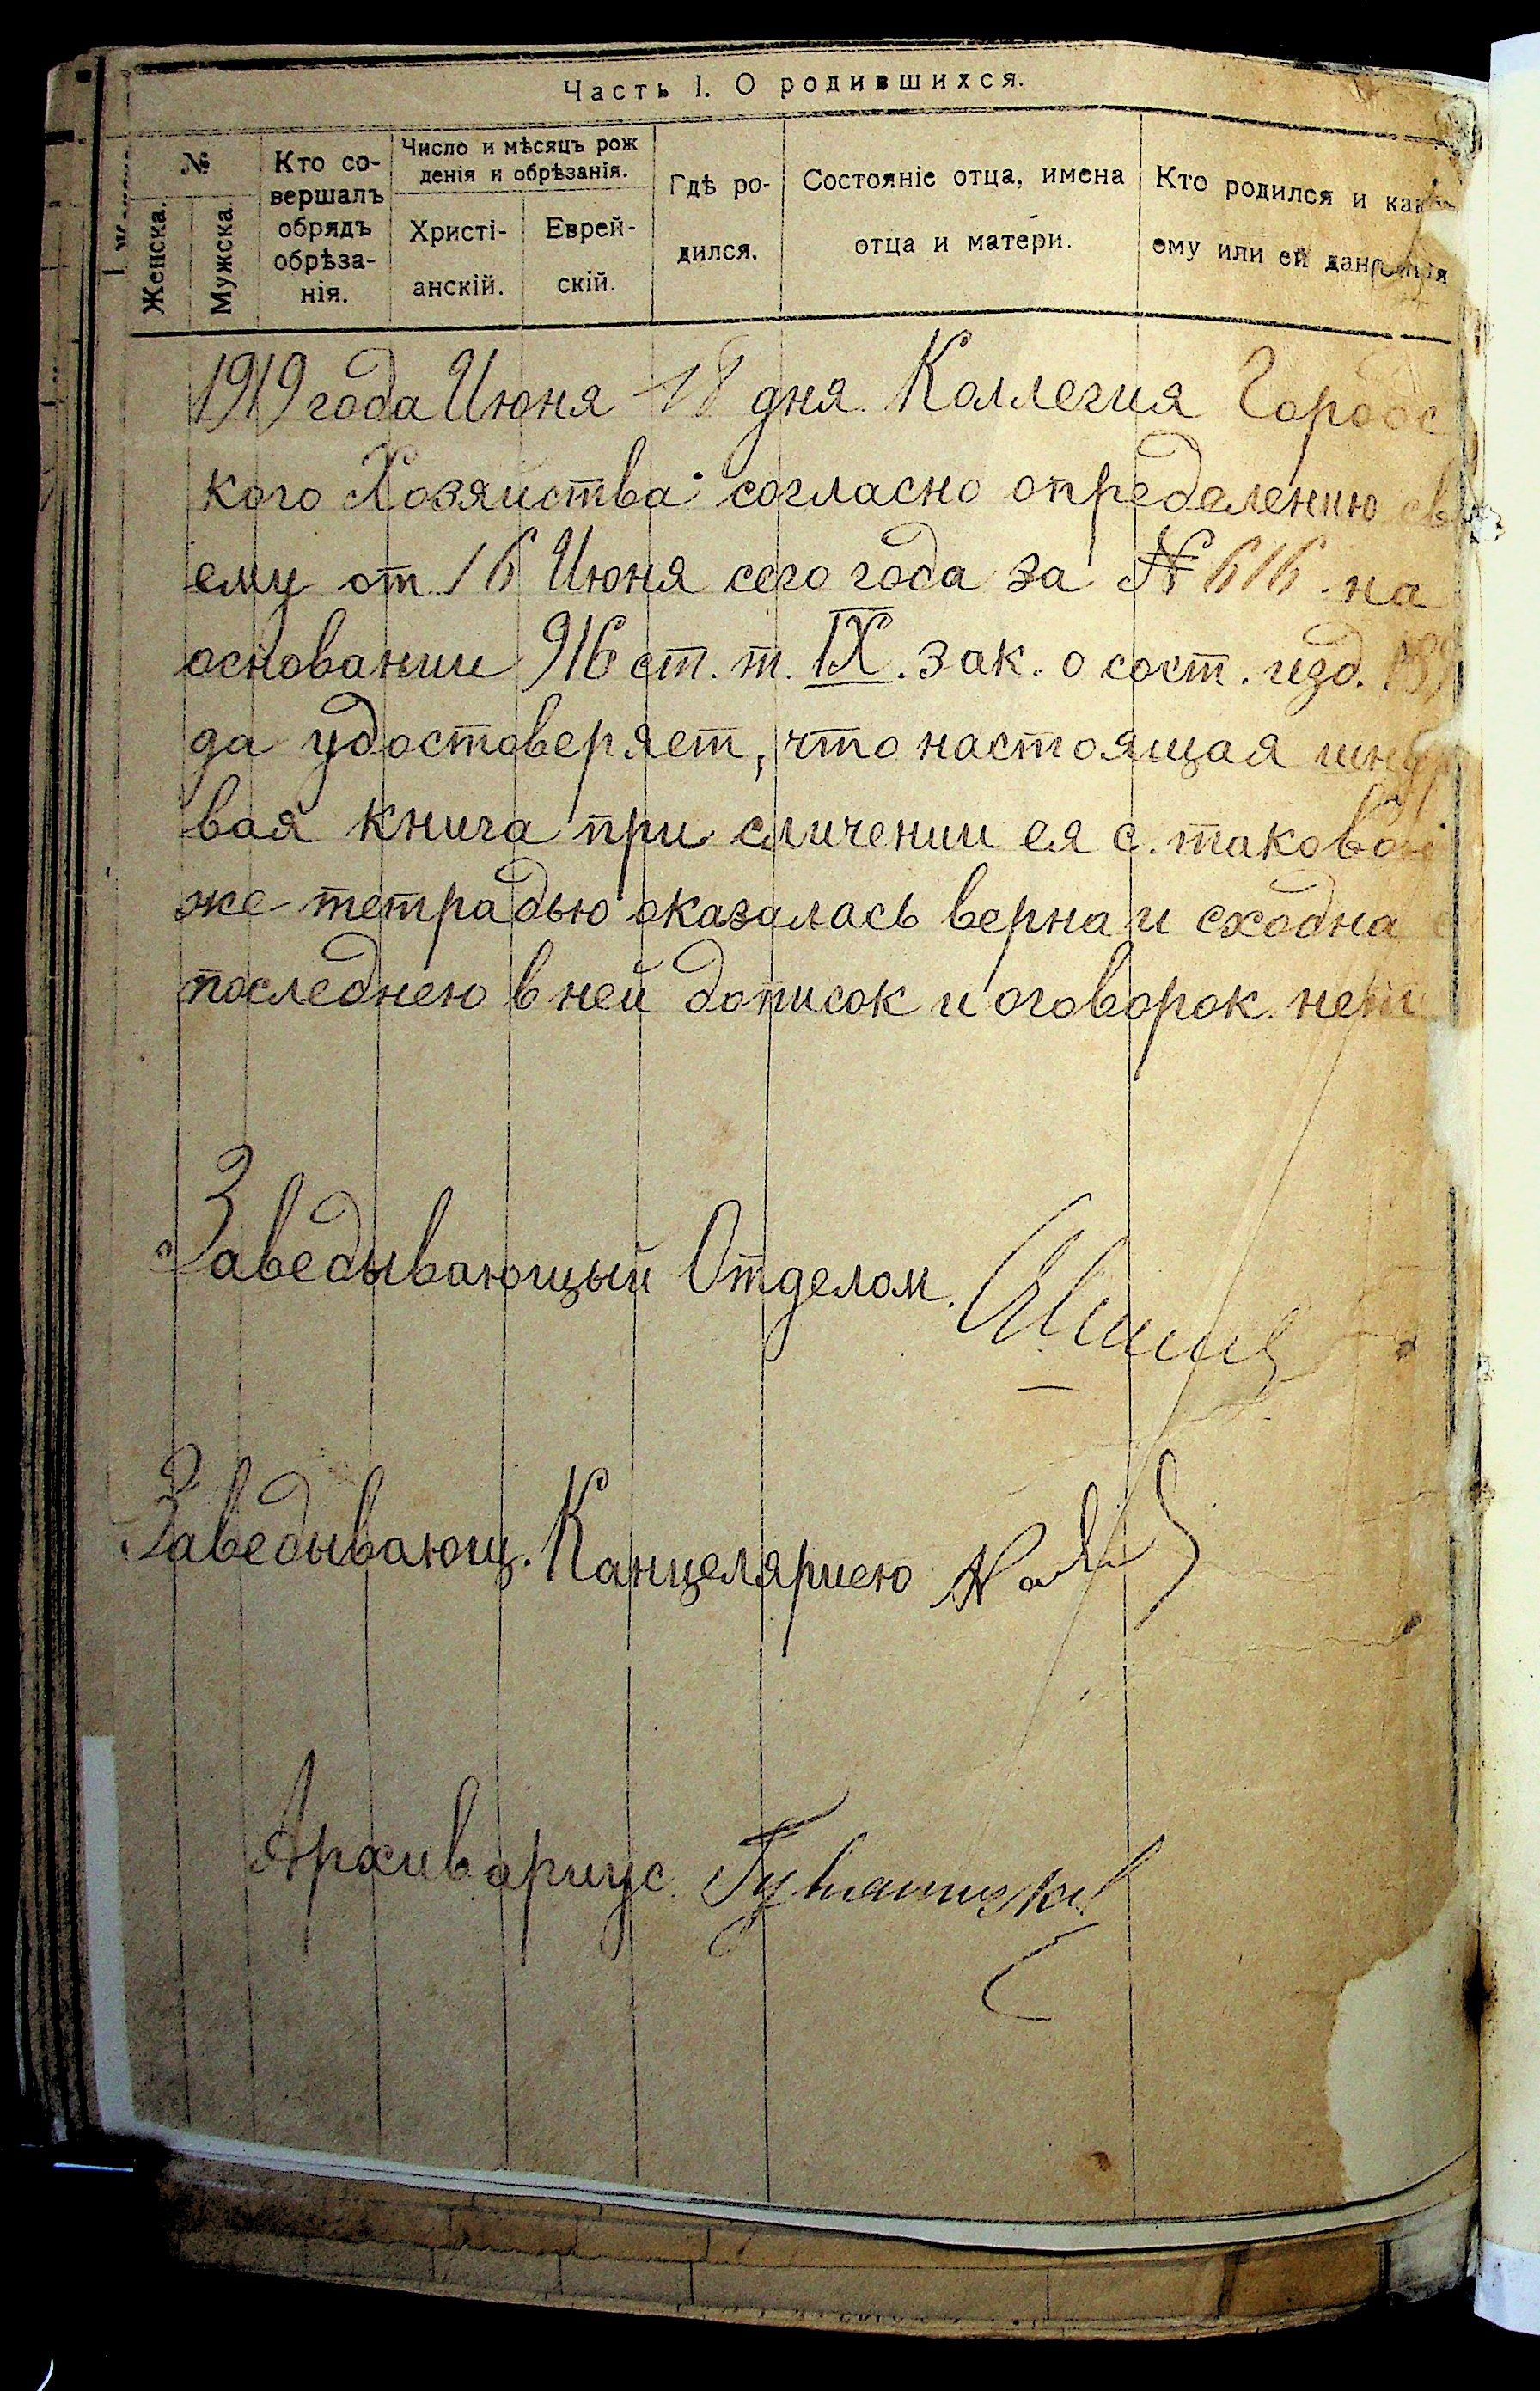 Часть I. О родившихся.
№
Женска.
Мужска
Кто со-
вершалъ
обрядъ
обрѣза-
нія.
Число и мѣсяцъ рож
денія и обрѣзанія.
Христі-
анскій.
Еврей-
скій.
Гдѣ ро-
дился.
Состояніе отца, имена
отца и матери.
Кто родился и как
ему или ей дано
1919 года Июня 18 дня Коллегия Городс
кого Хозяйства согласно определению св
ему от 16 Июня сего года за № 616 на
основании 916 ст. т. IX. зак. о сост. изд.
да удостоверяет, что настоящая шнур
вая книга при сличении ея с таковой
же тетрадью оказалась верна и сходна с
последнею в ней дописок и оговорок нет
Заведывающый Отделом
Заведывающ. Канцеляриею
Архивариус